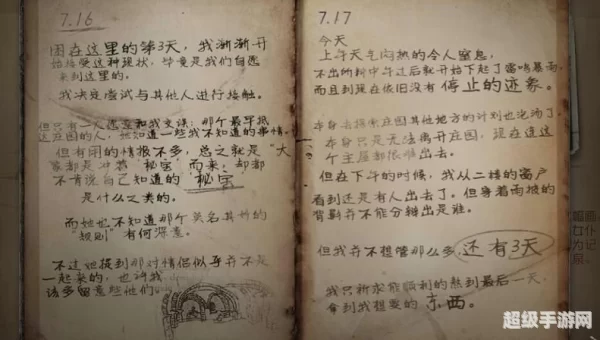 7.16
困在这里的第3天，我渐渐开
始接受这种现状，毕竟是我们自愿
来到这里的。
我决定尝试与其他人进行接触。
但只有一人愿意和我交谈：那个最早抵
达庄园的人，她知道一些我不知道的事情。
但有用的情报不多，总之就是“大
家都是冲着“秘宝”而来，却都
不肯说自己知道的“秘宝”
是什么之类的。
而她也不知道那个莫名其妙的
“规则”有何深意。
不过她提到那对情侣似乎并不是
一起来的，也让我
该多留意些他们。
7.17
今天
上午天气闷热的令人窒息，
不出所料中午过后就开始下起了雷鸣暴雨，
而且到现在依旧没有停止的迹象。
本身去探索庄园其他地方的计划也泡汤了。
本身只是无法离开庄园，现在连这
个主屋都很难出去。
但在下午的时候，我从二楼的窗户
看到还是有人出去了。但穿着雨披的
背影并不能分辨出是谁。
但我并不想管那么多，还有3天
我只祈求能顺利的熬到最后一天，
拿到我想要的东西。
超级手游网